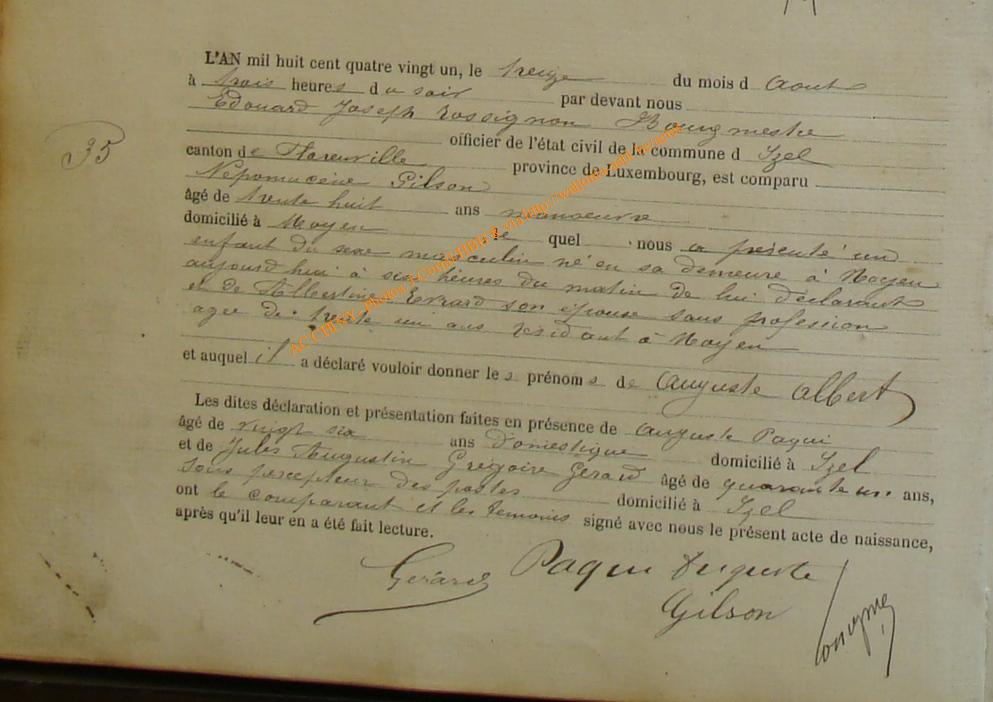 35
L'AN mil huit cent quatre vingt un, le treize du mois d Aout
à trois heures du soir par devant nous
Edouard Joseph Rossignon Bourgmestre
officier de l'état civil de la commune d Izel
canton de Florenville province de Luxembourg, est comparu
Népomucène Gilson
âgé de trente huit ans manoeuvre
domicilié à Moyen le quel nous a présenté un
enfant du sexe masculin né en sa demeure à Moyen
aujourd'hui à six heures du matin de lui déclarant
et de Albertine Evrard son épouse sans profession
agée de trente un ans résidant à Moyen
et auquel il a déclaré vouloir donner les prénoms de Auguste Albert
Les dites déclaration et présentation faites en présence de Auguste Paqui
âgé de vingt six ans Domestique domicilié à Izel
et de Jules Augustin Grégoire Gerard âgé de quarante un ans,
Sous percepteur des postes domicilié à Izel
ont le comparant et les témoins signé avec nous le présent acte de naissance,
après qu'il leur en a été fait lecture.
Gérard Paqui Auguste
Gilson